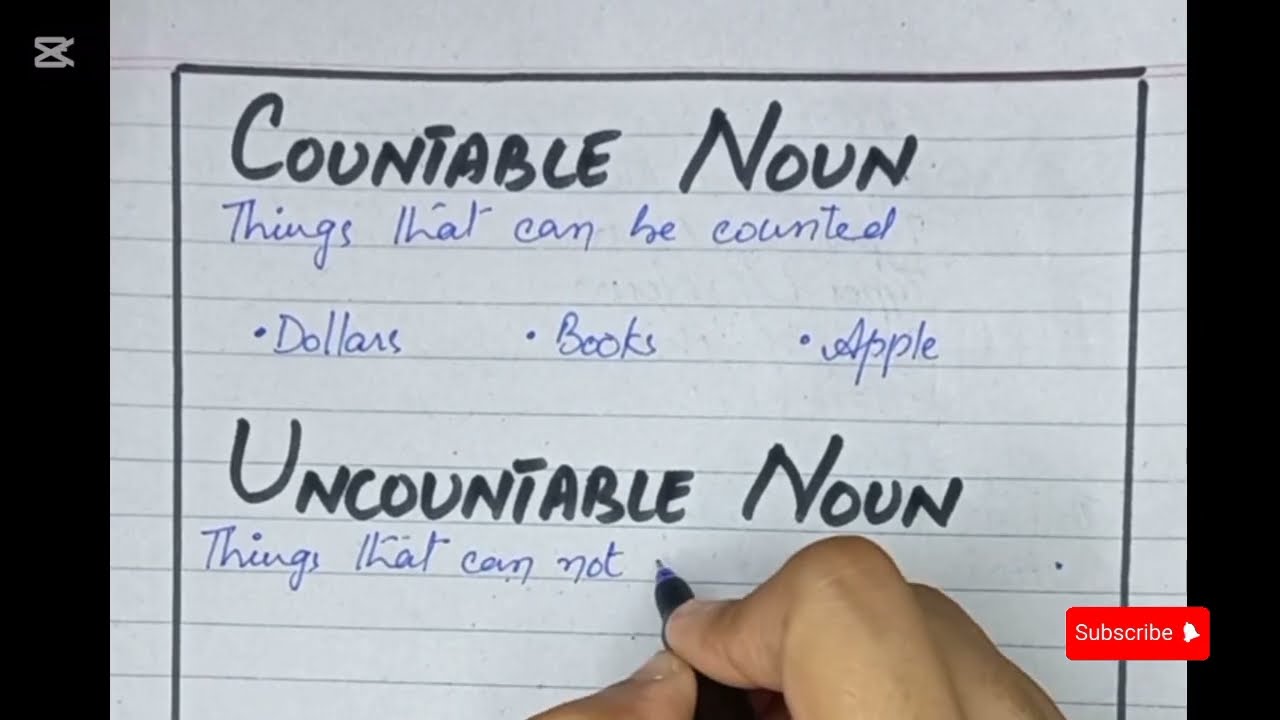 COUNTABLE NOUN
Things that can be counted
• Dollars • Books • Apple
UNCOUNTABLE NOUN
Things that can not
Subscribe